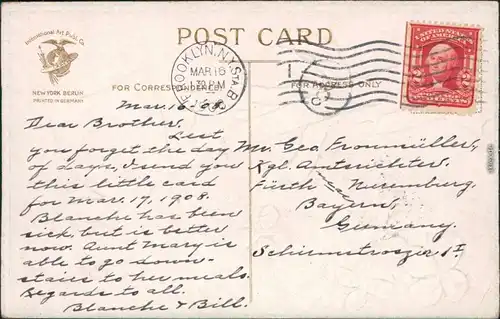 POST CARD
International Art Publ. Co.
NEW YORK BERLIN
PRINTED IN GERMANY
FOR CORRESPONDENCE
FOR ADDRESS ONLY
BROOKLYN, N.Y. STA. B.
MAR 16
UNITED STATES OF AMERICA
2 2
Mar. 16-08.
Dear Brother,
Lest
you forget the day
of days, I send you
this little card
for Mar. 17, 1908.
Blanche has been
sick but is better
now. Aunt Mary is
able to go down-
stairs to her meals.
Regards to all.
Blanche & Bill.
Mr. Geo. Fronmüller,
Kgl. Amtsrichter,
Fürth Nuremburg.
Bayern,
Germany.